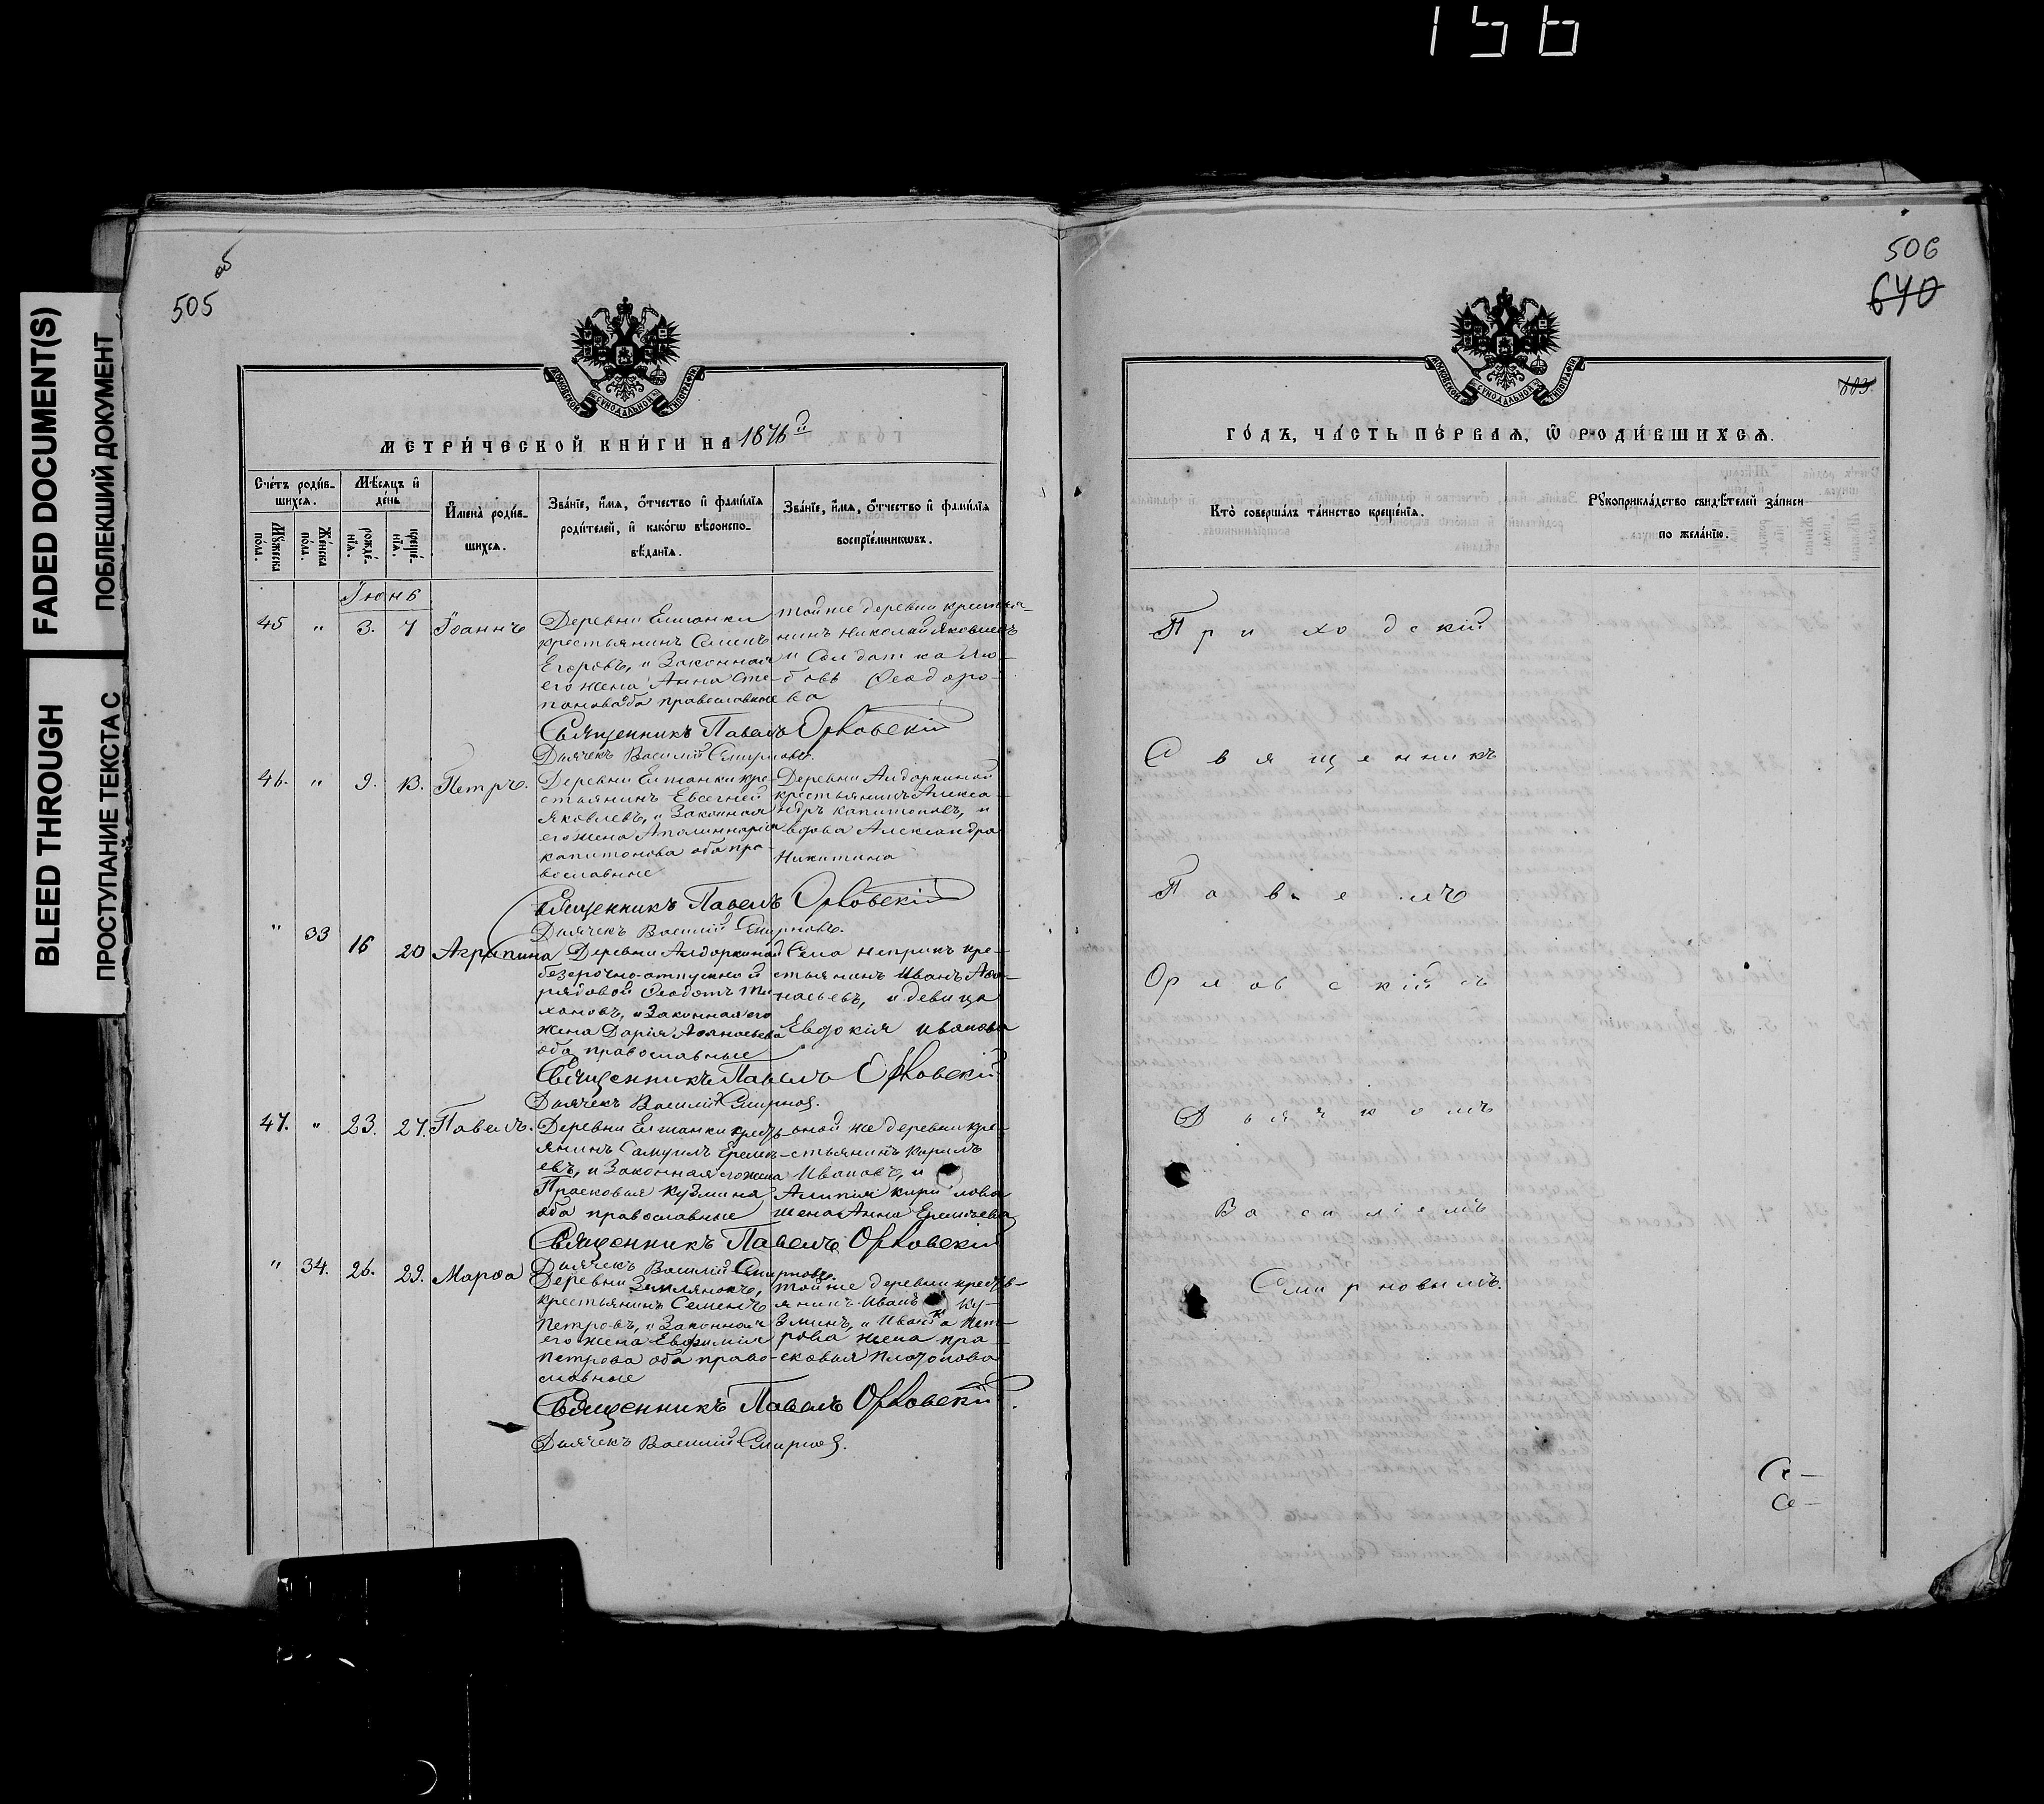 156
FADED DOCUMENT(S)
ПОБЛЕКШИЙ ДОКУМЕНТ
BLEED THROUGH
ПРОСТУПАНИЕ ТЕКСТА С
об
505
МОСКОВСКОЙ СѴНОДАЛЬНОЙ ТИПОГРАФІИ
МЕТРИ́ЧЕСКОЙ КНИ́ГИ НА 1876й
Сче́тъ роди́в-
шихся.
Мѣ́сяцъ и҆
де́нь
Му́жеска по́ла.
Же́нска по́ла.
рожде́-нїя.
креще́-нїя.
И҆мена̀ роди́в-
шихся.
Зва́нїе, и҆́мя, о҆́тчество и҆ фами́лїя
роди́телей, и҆ како́гѡ вѣроиспо-
вѣ́данїя.
Зва́нїе, и҆́мя, о҆́тчество и҆ фами́лїя
воспрїе́мникѡвъ.
Іюнь
45 " 3. 7 Іоаннъ
Деревни Елшанки
крестьянинъ Семенъ
Егоровъ, и Законная
его жена Анна Сте-
панова оба православные
тойже деревни крестья-
нинъ Николай Яковлевъ
и Солдатка Лю-
бовь Ѳеодоро-
ва
Священникъ Павелъ Орловскій
Дьячекъ Василій Смирновъ.
46. " 9. 13. Петръ.
Деревни Елшанки кре-
стьянинъ Евсегней
Яковлевъ, и Законная
его жена Аполинария
капитонова оба пра-
вославные
Деревни Алдаркиной
крестьянинъ Алекса-
ндръ капитоновъ, и
вдова Александра
Никитина
Священникъ Павелъ Орловскій
Дьячекъ Василій Смирновъ.
" 33 16 20 Агрипина
Деревни Алдаркиной
безсрочно-отпускной
рядовой Ѳеодотъ Ти-
хоновъ, и Законная его
жена Дарія Аѳанасьева
оба православные
Села Неприкъ кре-
стьянинъ Иванъ Аѳа-
насьевъ, и девица
Евдокія иванова
Священникъ Павелъ Орловскій
Дьячекъ Василій Смирновъ.
47. " 23. 27. Павелъ.
Деревни Елшанки кресть-
янинъ Самуилъ Еремѣ-
евъ, и Законная его жена
Прасковья Кузмина
оба православные
оной же деревни кре-
стьянинъ Кирилъ
Ивановъ, и
кирилова
жена Анна Еремѣева
Священникъ Павелъ Орловскій
Дьячекъ Василій Смирновъ.
" 34. 26. 29. Марѳа
Деревни Землянокъ,
крестьянинъ Семенъ
Петровъ, и Законная
его жена Евфимия
Петрова оба право-
славные
тойже деревни кресть-
янинъ Иванъ Ку-
зминъ, и Ивана Пет-
рова жена пра-
сковья Платонова
Священникъ Павелъ Орловскій.
Дьячекъ Василій Смирновъ.
506
640
683.
МОСКОВСКОЙ СѴНОДАЛЬНОЙ ТИПОГРАФІИ
ГО́ДЪ, ЧА́СТЬ ПЕ́РВАЯ, Ѡ҆ РОДИ́ВШИХСЯ.
Кто̀ соверша́лъ та́инство креще́нїя.
Рꙋкоприкла́дство свидѣ́телей за́писи
по жела́нїю.
Приходскій
Священникъ
Павелъ
Орловскій съ
Дьячкомъ
Василіемъ
Смирновымъ.
Се-
Се-